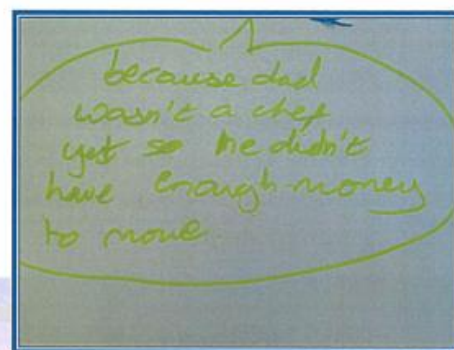 because dad
wasn't a chef
yet so he didn't
have enough money
to move.